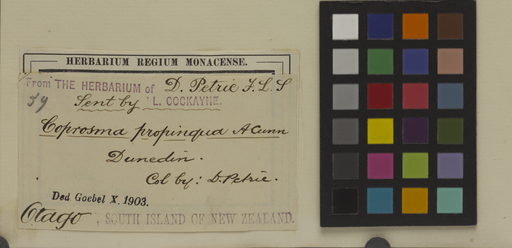 HERBARIUM REGIUM MONACENSE.
From THE HERBARIUM of D. Petrie F.L.S
59
Sent by L. COCKAYNE.
Coprosma propinqua A Cunn
Dunedin.
Col by: D. Petrie.
Ded Goebel X. 1903.
Otago, SOUTH ISLAND OF NEW ZEALAND.